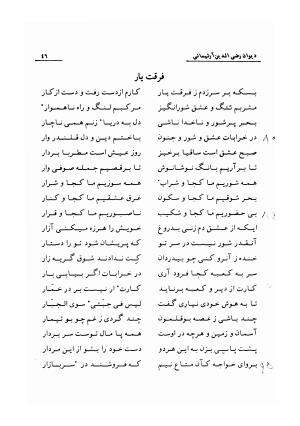 دیوان رضی الدین آرتیمانی ۴٦
فرقت یار
بسکه بر سرزدم ز فرقت یار کارم ازدست رفت و دست از کار
مشربم تنگ و عشق شورانگیز مرکبم لنگ و راه ناهموار
بحر پرشور و ناخدا ناشی دل به دریا زنم همی ناچار
در خرابات عشق و شور و جنون باختم دین و دل قلندر وار
صبح عشق است ساقیا برخیز روز عیش است مطربا بردار
تا برآریم بانگ نوشانوش تا برقصیم جمله صوفی وار
همه شوریم ما کجا و شراب همه سوزیم ما کجا و شرار
بحر شوقیم ما کجا و سکون غرق عشقیم ما کجا و کنار
بی حضوریم ما کجا و شکیب ناصبوریم ما کجا و قرار
ایکه از عشق دم زنی بدروغ خویش را هرزه میکنی آزار
آنقدر شور نیست در سر تو که پریشان شود تو را دستار
خنده زآنرو کنی چو بیدردان کت ندادند شوق گریه زار
سر به کعبه کجا فرود آری در خرابات اگر بیابی بار
کارت از دیر و کعبه برناید کارت ار نیست بر در خمار
تا به هوش خودی نیاری گفت لیس فی جبتی سوی الجبار
چند باشی ز غصه بوقلمون چند گردی ز غم چو بوتیمار
آسمان و زمین و هرچه در اوست همه پامال توست سر بردار
پشت پاسیی بزن به این هردو دست خود را بشو از این مردار
بروای خواجه کآن متاع نیم که فروشند در سربازار